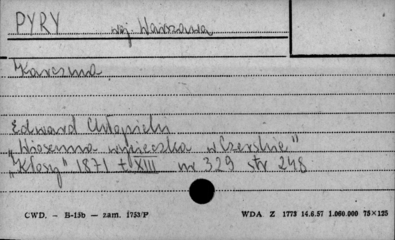 PYRY woj. Warszawa
Karczma
Edward Chłopicki
„Wiosenna wycieczka w Czerskie"
„Kłosy" 1871 t. XIII nr 329 str 248
CWD. — B-15b — zam. 1753/P WDA Z 1773 14.6.57 1.000.000 75×125